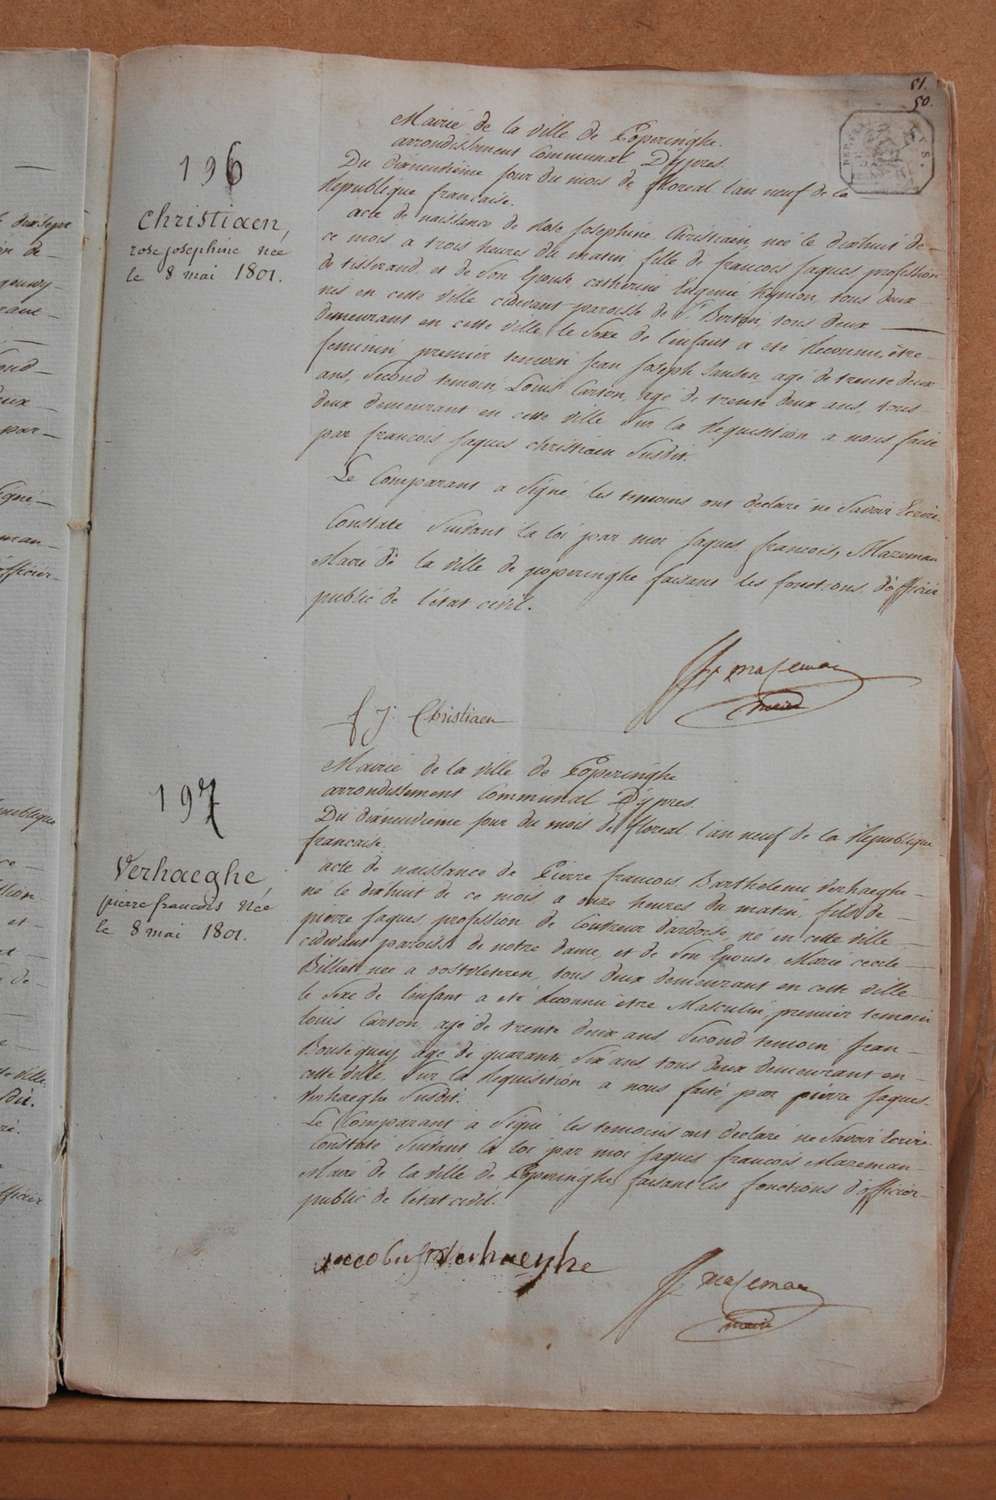 51.
50.
196
Christiaen,
rose josephine née
le 8 mai 1801.
Mairie de la ville de Poperinghe.
arrondissement Communal D'ypres.
Du dixneuvième jour du mois de floreal l'an neuf de la
Republique francaise.
acte de naissance de Rose Josephine Christiaen, née le dixhuit de
ce mois a trois heures du matin, fille de francois Jaques profession
de tisserand, et de Son Epouse catherine Eugenie, tous deux
nés en cette ville cidevant paroisse de St Bertin, tous deux
demeurant en cette ville, le Sexe de l'enfant a eté Reconnu être
feminin premier temoin Jean Joseph Jansen agé de trente deux
ans, Second temoin, Louis Carton, age de trente deux ans, tous
deux demeurant en cette ville Sur la Requisition a nous faite
par francois Jaques christiaen Susdit.
Le Comparant a Signé les temoins ont declaré ne Savoir Ecrire.
Constaté Suivant la loi par moi Jaques francois, Mazeman
Maire de la ville de poperinghe faisant les fonctions d'officier
public de l'état civil.
JF mazeman
maire
f J. Christiaen
197
Verhaeghe,
pierre francois née
le 8 mai 1801.
Mairie de la ville de Poperinghe
arrondissement Communal D'ypres.
Du dixneuvieme jour du mois de floreal l'an neuf de la Republique
francaise.
acte de naissance de Pierre francois Barthelemi Verhaeghe
né le dixhuit de ce mois a onze heures du matin, fils de
pierre Jaques profession de Couvreur d'ardoise, né en cette ville
cidevant paroisse de notre dame, et de Son Epouse Marie cecile
Billiet née a oostvleteren, tous deux demeurant en cette ville
le Sexe de l'enfant a eté Reconnu être Masculin, premier temoin
louis Carton, agé de trente deux ans Second temoin Jean
Bousequey, agé de quarante Six ans tous deux demeurant en
cette ville, Sur la Requisition a nous faite par pierre Jaques
Verhaeghe Susdit.
Le Comparant a Signé les temoins ont declaré ne Savoir Ecrire
Constaté Suivant la loi par moi Jaques francois Mazeman
Maire de la ville de Poperinghe, faisant les fonctions d'officier
public de l'état civil.
Verhaeghe
JF mazeman
maire